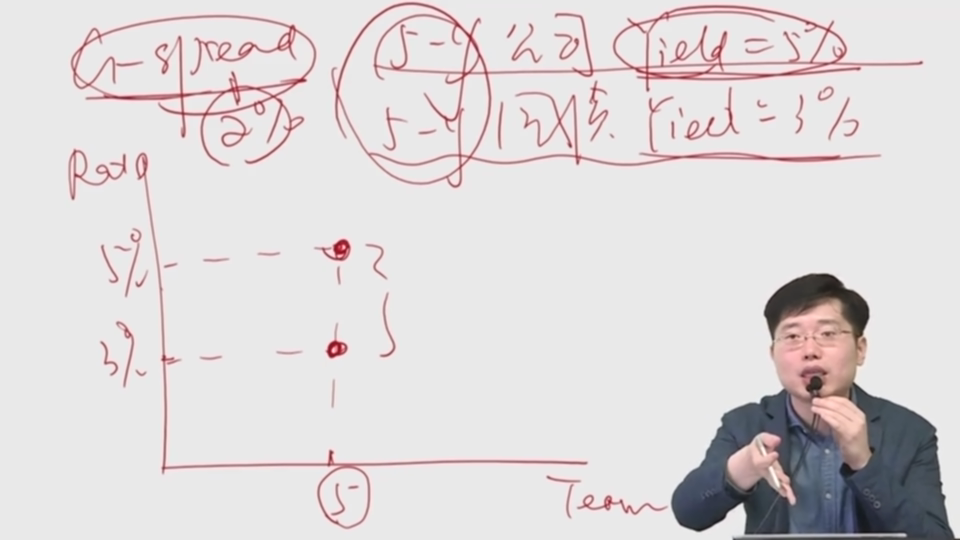 G-spread 5-y 公司 Yield = 5%
2% 5-y 国债 Yield = 3%
Rate
5%
3%
5
Term